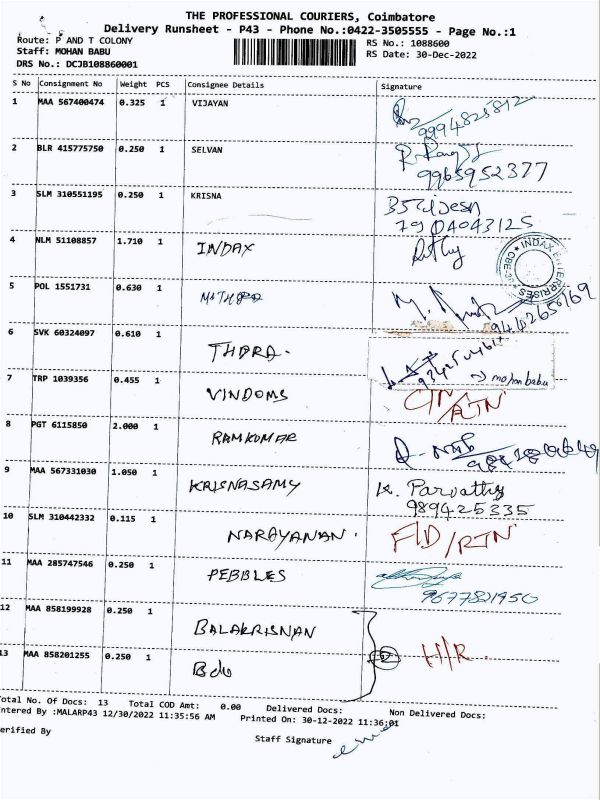 THE PROFESSIONAL COURIERS, Coimbatore
Delivery Runsheet - P43 - Phone No.:0422-3505555 - Page No.:1
Route: P AND T COLONY
RS No.: 1088600
Staff: MOHAN BABU
RS Date: 30-Dec-2022
DRS No.: DCJB108860001
S No Consignment No Weight PCS Consignee Details Signature
1 MAA 567400474 0.325 1 VIJAYAN 9994825812
2 BLR 415775750 0.250 1 SELVAN 9965952377
3 SLM 310551195 0.250 1 KRISNA
7904043125
4 NLM 51108857 1.710 1 INDAX
INDAX ENTERPRISES
5 POL 1551731 0.630 1
6 SVK 60324097 0.610 1 THDRA.
mohan babu
7 TRP 1039356 0.455 1 VINDOMS CTN/RTN
8 PGT 6115850 2.000 1 RAMKUMAR
9 MAA 567331030 1.050 1 KRISNASAMY K. Parvathy
989425335
10 SLM 310442332 0.115 1 NARAYANAN. F/D/RTN
11 MAA 285747546 0.250 1 PEBBLES
9677821950
12 MAA 858199928 0.250 1 BALAKRISNAN
13 MAA 858201255 0.250 1 Bdo 2 H/R.
otal No. Of Docs: 13 Total COD Amt: 0.00 Delivered Docs: Non Delivered Docs:
ntered By :MALARP43 12/30/2022 11:35:56 AM Printed On: 30-12-2022 11:36:01
erified By
Staff Signature